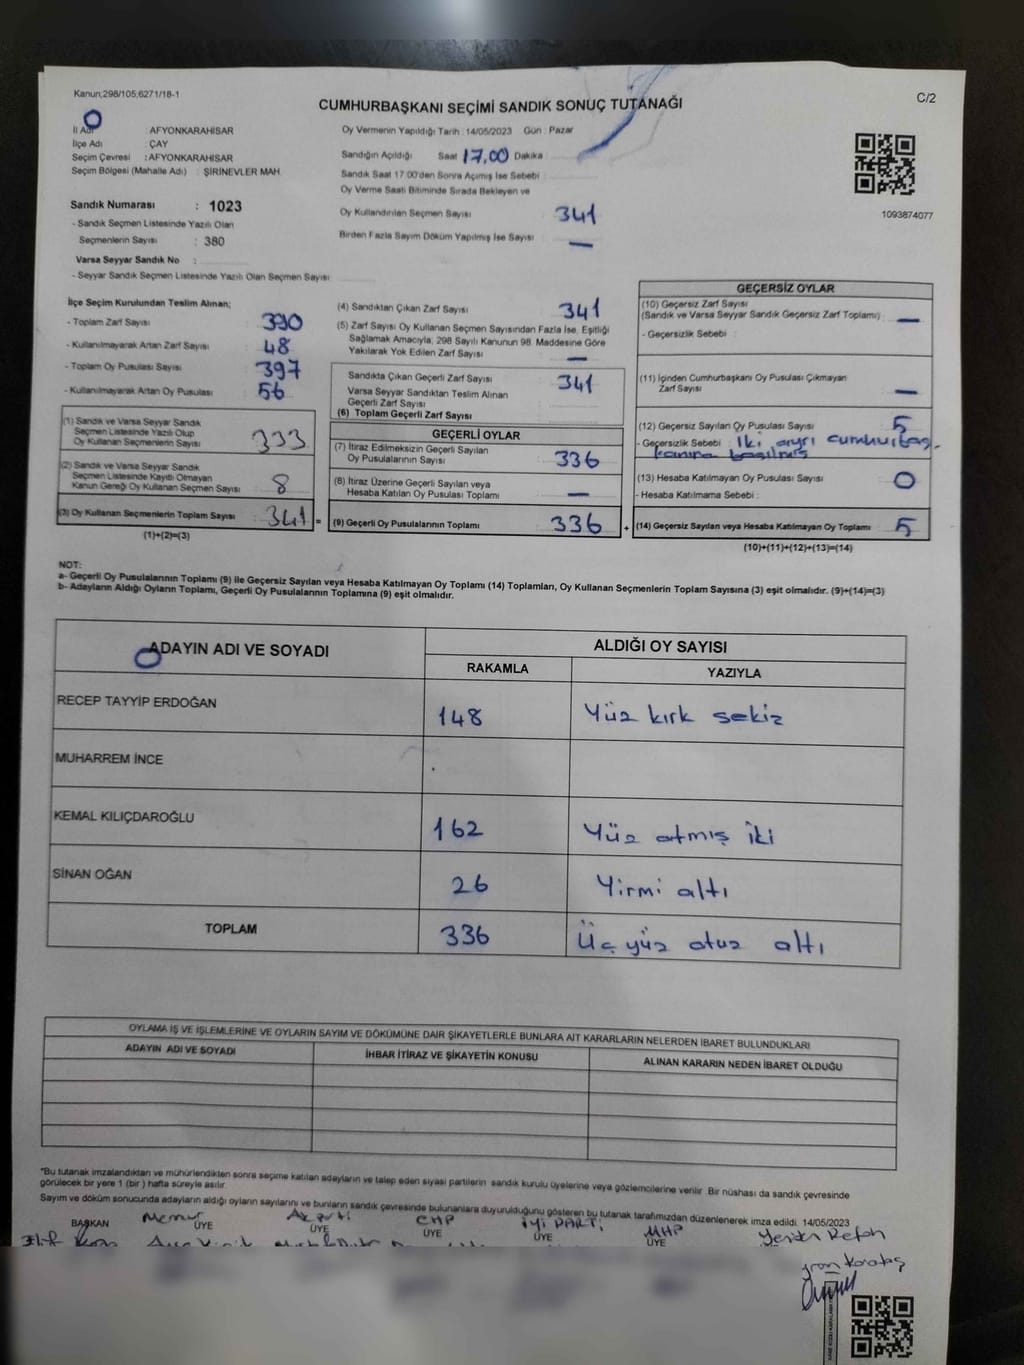 Kanun;298/105;6271/18-1
C/2
CUMHURBAŞKANI SEÇİMİ SANDIK SONUÇ TUTANAĞI
İl Adı : AFYONKARAHİSAR
İlçe Adı : ÇAY
Seçim Çevresi : AFYONKARAHİSAR
Seçim Bölgesi (Mahalle Adı) : ŞİRİNEVLER MAH
Sandık Numarası : 1023
- Sandık Seçmen Listesinde Yazılı Olan
Seçmenlerin Sayısı : 380
Varsa Seyyar Sandık No :
- Seyyar Sandık Seçmen Listesinde Yazılı Olan Seçmen Sayısı
Oy Vermenin Yapıldığı Tarih : 14/05/2023 Gün : Pazar
Sandığın Açıldığı Saat 17.00 Dakika
Sandık Saat 17.00'den Sonra Açılmış İse Sebebi
Oy Verme Saati Bitiminde Sırada Bekleyen ve
Oy Kullandırılan Seçmen Sayısı 341
Birden Fazla Sayım Döküm Yapılmış İse Sayısı —
1093874077
İlçe Seçim Kurulundan Teslim Alınan;
- Toplam Zarf Sayısı : 390
- Kullanılmayarak Artan Zarf Sayısı : 48
- Toplam Oy Pusulası Sayısı : 397
- Kullanılmayarak Artan Oy Pusulası : 56
(1) Sandık ve Varsa Seyyar Sandık
Seçmen Listesinde Yazılı Olup
Oy Kullanan Seçmenlerin Sayısı 333
(2) Sandık ve Varsa Seyyar Sandık
Seçmen Listesinde Kayıtlı Olmayan
Kanun Gereği Oy Kullanan Seçmen Sayısı 8
(3) Oy Kullanan Seçmenlerin Toplam Sayısı 341 =
(1)+(2)=(3)
(4) Sandıktan Çıkan Zarf Sayısı 341
(5) Zarf Sayısı Oy Kullanan Seçmen Sayısından Fazla İse, Eşitliği
Sağlamak Amacıyla, 298 Sayılı Kanunun 98. Maddesine Göre
Yakılarak Yok Edilen Zarf Sayısı —
Sandıkta Çıkan Geçerli Zarf Sayısı 341
Varsa Seyyar Sandıktan Teslim Alınan
Geçerli Zarf Sayısı
(6) Toplam Geçerli Zarf Sayısı
GEÇERLİ OYLAR
(7) İtiraz Edilmeksizin Geçerli Sayılan
Oy Pusulalarının Sayısı 336
(8) İtiraz Üzerine Geçerli Sayılan veya
Hesaba Katılan Oy Pusulası Toplamı —
(9) Geçerli Oy Pusulalarının Toplamı 336 +
GEÇERSİZ OYLAR
(10) Geçersiz Zarf Sayısı
(Sandık ve Varsa Seyyar Sandık Geçersiz Zarf Toplamı) —
- Geçersizlik Sebebi :
(11) İçinden Cumhurbaşkanı Oy Pusulası Çıkmayan
Zarf Sayısı —
(12) Geçersiz Sayılan Oy Pusulası Sayısı 5
- Geçersizlik Sebebi : İki ayrı cumhurbaş-
kanına basılmış
(13) Hesaba Katılmayan Oy Pusulası Sayısı 0
- Hesaba Katılmama Sebebi :
(14) Geçersiz Sayılan veya Hesaba Katılmayan Oy Toplamı 5
(10)+(11)+(12)+(13)=(14)
NOT:
a- Geçerli Oy Pusulalarının Toplamı (9) ile Geçersiz Sayılan veya Hesaba Katılmayan Oy Toplamı (14) Toplamları, Oy Kullanan Seçmenlerin Toplam Sayısına (3) eşit olmalıdır. (9)+(14)=(3)
b- Adayların Aldığı Oyların Toplamı, Geçerli Oy Pusulalarının Toplamına (9) eşit olmalıdır.
ADAYIN ADI VE SOYADI
ALDIĞI OY SAYISI
RAKAMLA YAZIYLA
RECEP TAYYİP ERDOĞAN 148 Yüz kırk sekiz
MUHARREM İNCE
KEMAL KILIÇDAROĞLU 162 Yüz atmış iki
SİNAN OĞAN 26 Yirmi altı
TOPLAM 336 Üç yüz otuz altı
OYLAMA İŞ VE İŞLEMLERİNE VE OYLARIN SAYIM VE DÖKÜMÜNE DAİR ŞİKAYETLERLE BUNLARA AİT KARARLARIN NELERDEN İBARET BULUNDUKLARI
ADAYIN ADI VE SOYADI İHBAR İTİRAZ VE ŞİKAYETİN KONUSU ALINAN KARARIN NEDEN İBARET OLDUĞU
"Bu tutanak imzalandıktan ve mühürlendikten sonra seçime katılan adayların ve talep eden siyasi partilerin sandık kurulu üyelerine veya gözlemcilerine verilir. Bir nüshası da sandık çevresinde
görülecek bir yere 1 (bir) hafta süreyle asılır.
Sayım ve döküm sonucunda adayların aldığı oyların sayılarını ve bunların sandık çevresinde bulunanlara duyurulduğunu gösteren bu tutanak tarafımızdan düzenlenerek imza edildi. 14/05/2023
Memur Ak parti CHP İYİ PARTİ MHP Yeniden Refah
BAŞKAN ÜYE ÜYE ÜYE ÜYE ÜYE